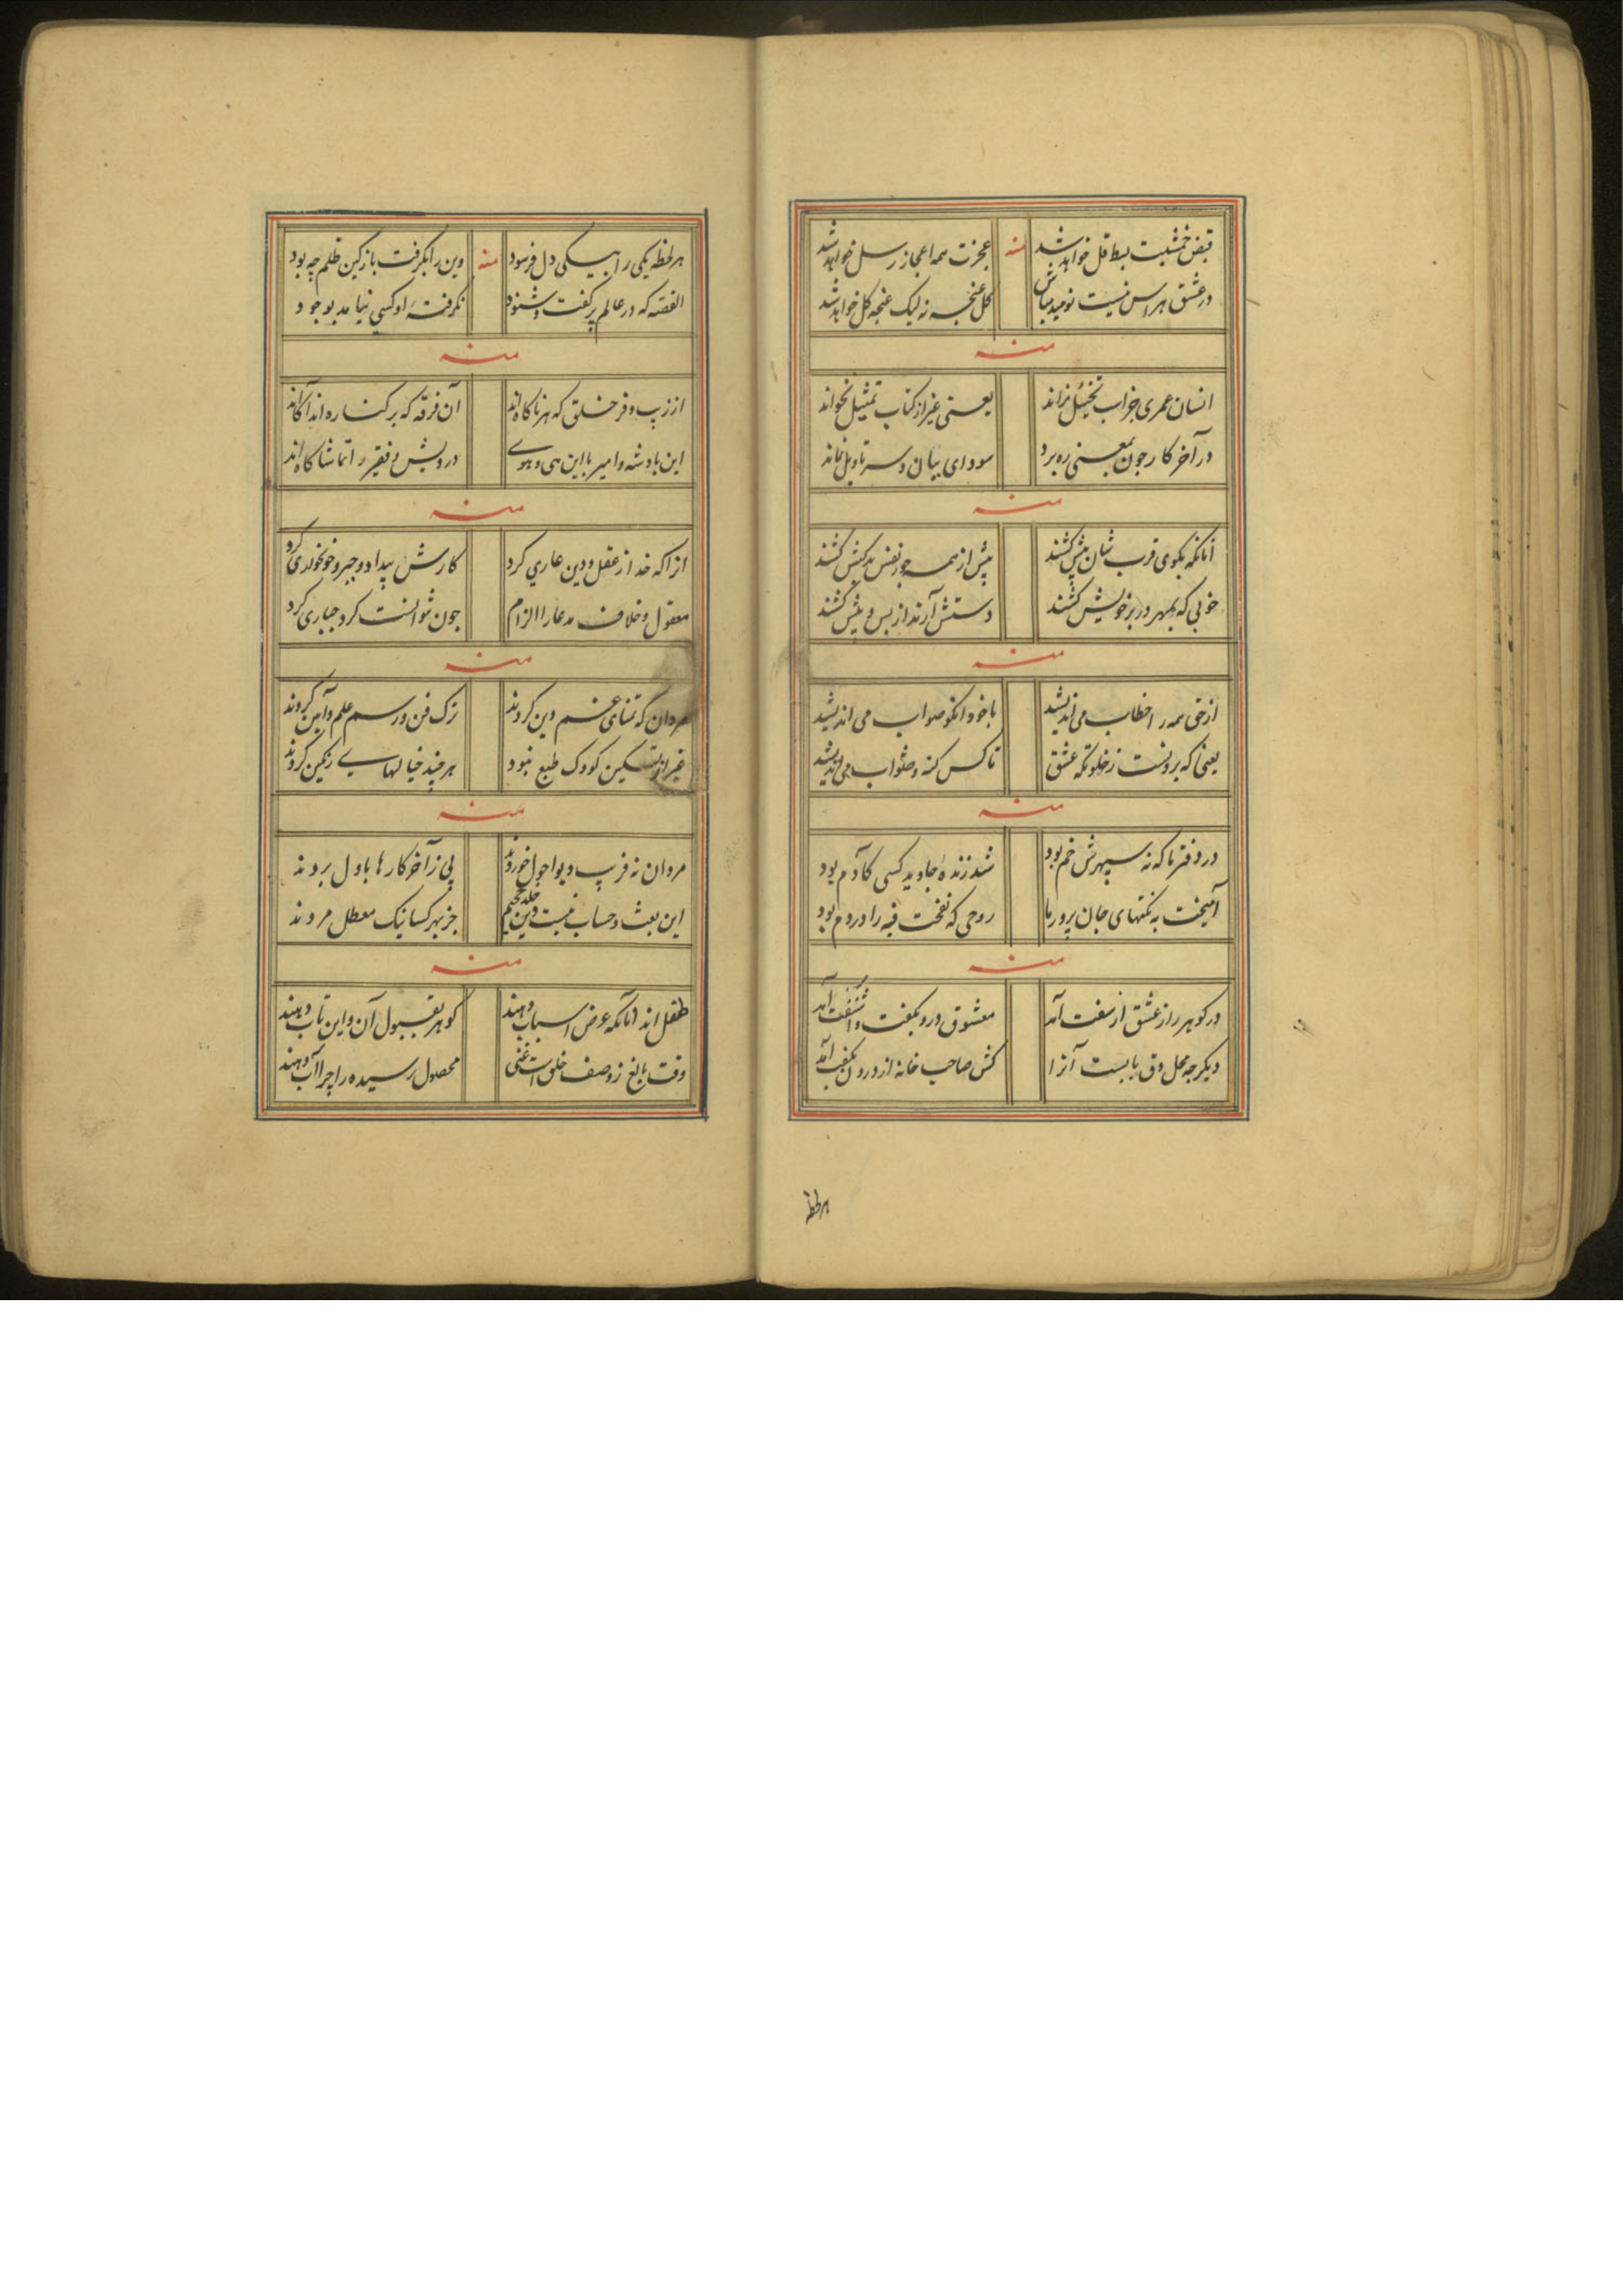 قبض خشیت بسط قل خواهد شد
منه
عجزت همه اعجاز رسل خواهد شد
در عشق هراس نیست نومید مباش
کل غنجه نه لیک غنجه کل خواهد شد
منه
انسان عمری جز اب تخییل نراند
یعنی غیر از کتاب تمثیل نخواند
در آخر کار جون بمعنی ره برد
سودای بیان و سر تاویل نماند
منه
آنانکه بکوی قرب شان بیش کشند
بیش از همه جور نفس بدکیش کشند
خوبی که بمهر در بر خویش کشند
دستش آرند از بس و بیش کشند
منه
از حق همه را خطاب می اندیشد
با خود انکو صواب می اندیشد
یعنی که برونست ز خلوتکه عشق
تا کس کنه و ثواب می اندیشد
منه
در دفتر ما که نه سپهرش خم بود
شد زنده جاوید کسی کادم بود
آمیخت به نکتهای جان پرور ما
روحی که نفخت فیه را در دم بود
منه
در کوهر راز عشق از سفت آمد
معشوق درو بکفت و آشفت آمد
دیکر جه محل دق بابست آنرا
کش صاحب خانه از درون بکفت آمد
هر لحظه
هر لحظه یکی را بیکی دل فرسود
منه
وین را بکرفت باز کین ظلم چه بود
القصه که در عالم پر کفت و شنود
نکرفته او کسی نیامد بوجود
منه
از زیب و فر خلق که هر ناکاه اند
آن فرقه که بر کناره اند آکاه اند
این بادشه و امیر با این هی و هوی
درویش و فقیر را تماشاکاه اند
منه
انرا که خدا ز عقل و دین عاری کرد
کارش بیداد و جبر و خونخواری کرد
معقول و خلاف مدعا را الزام
جون نتوانست کرد جباری کرد
منه
مردان که تمنای غم دین کردند
ترک فن و رسم علم و آیین کردند
غیر از تسکین کودک طبع نبود
هر چند خیالهای رنکین کردند
منه
مردان نه فریب دیو احول خوردند
پی ز آخر کارها باول بردند
این بعث و حساب نیست وین خلد و جحیم
جز بهر کسانیک معطل مردند
منه
طفل اند آنانکه عرض اسباب دهند
کوهر بقبول آن و این تاب دهند
وقت بالغ ز وصف خلق است غنی
محصول رسیده را چرا آب دهند